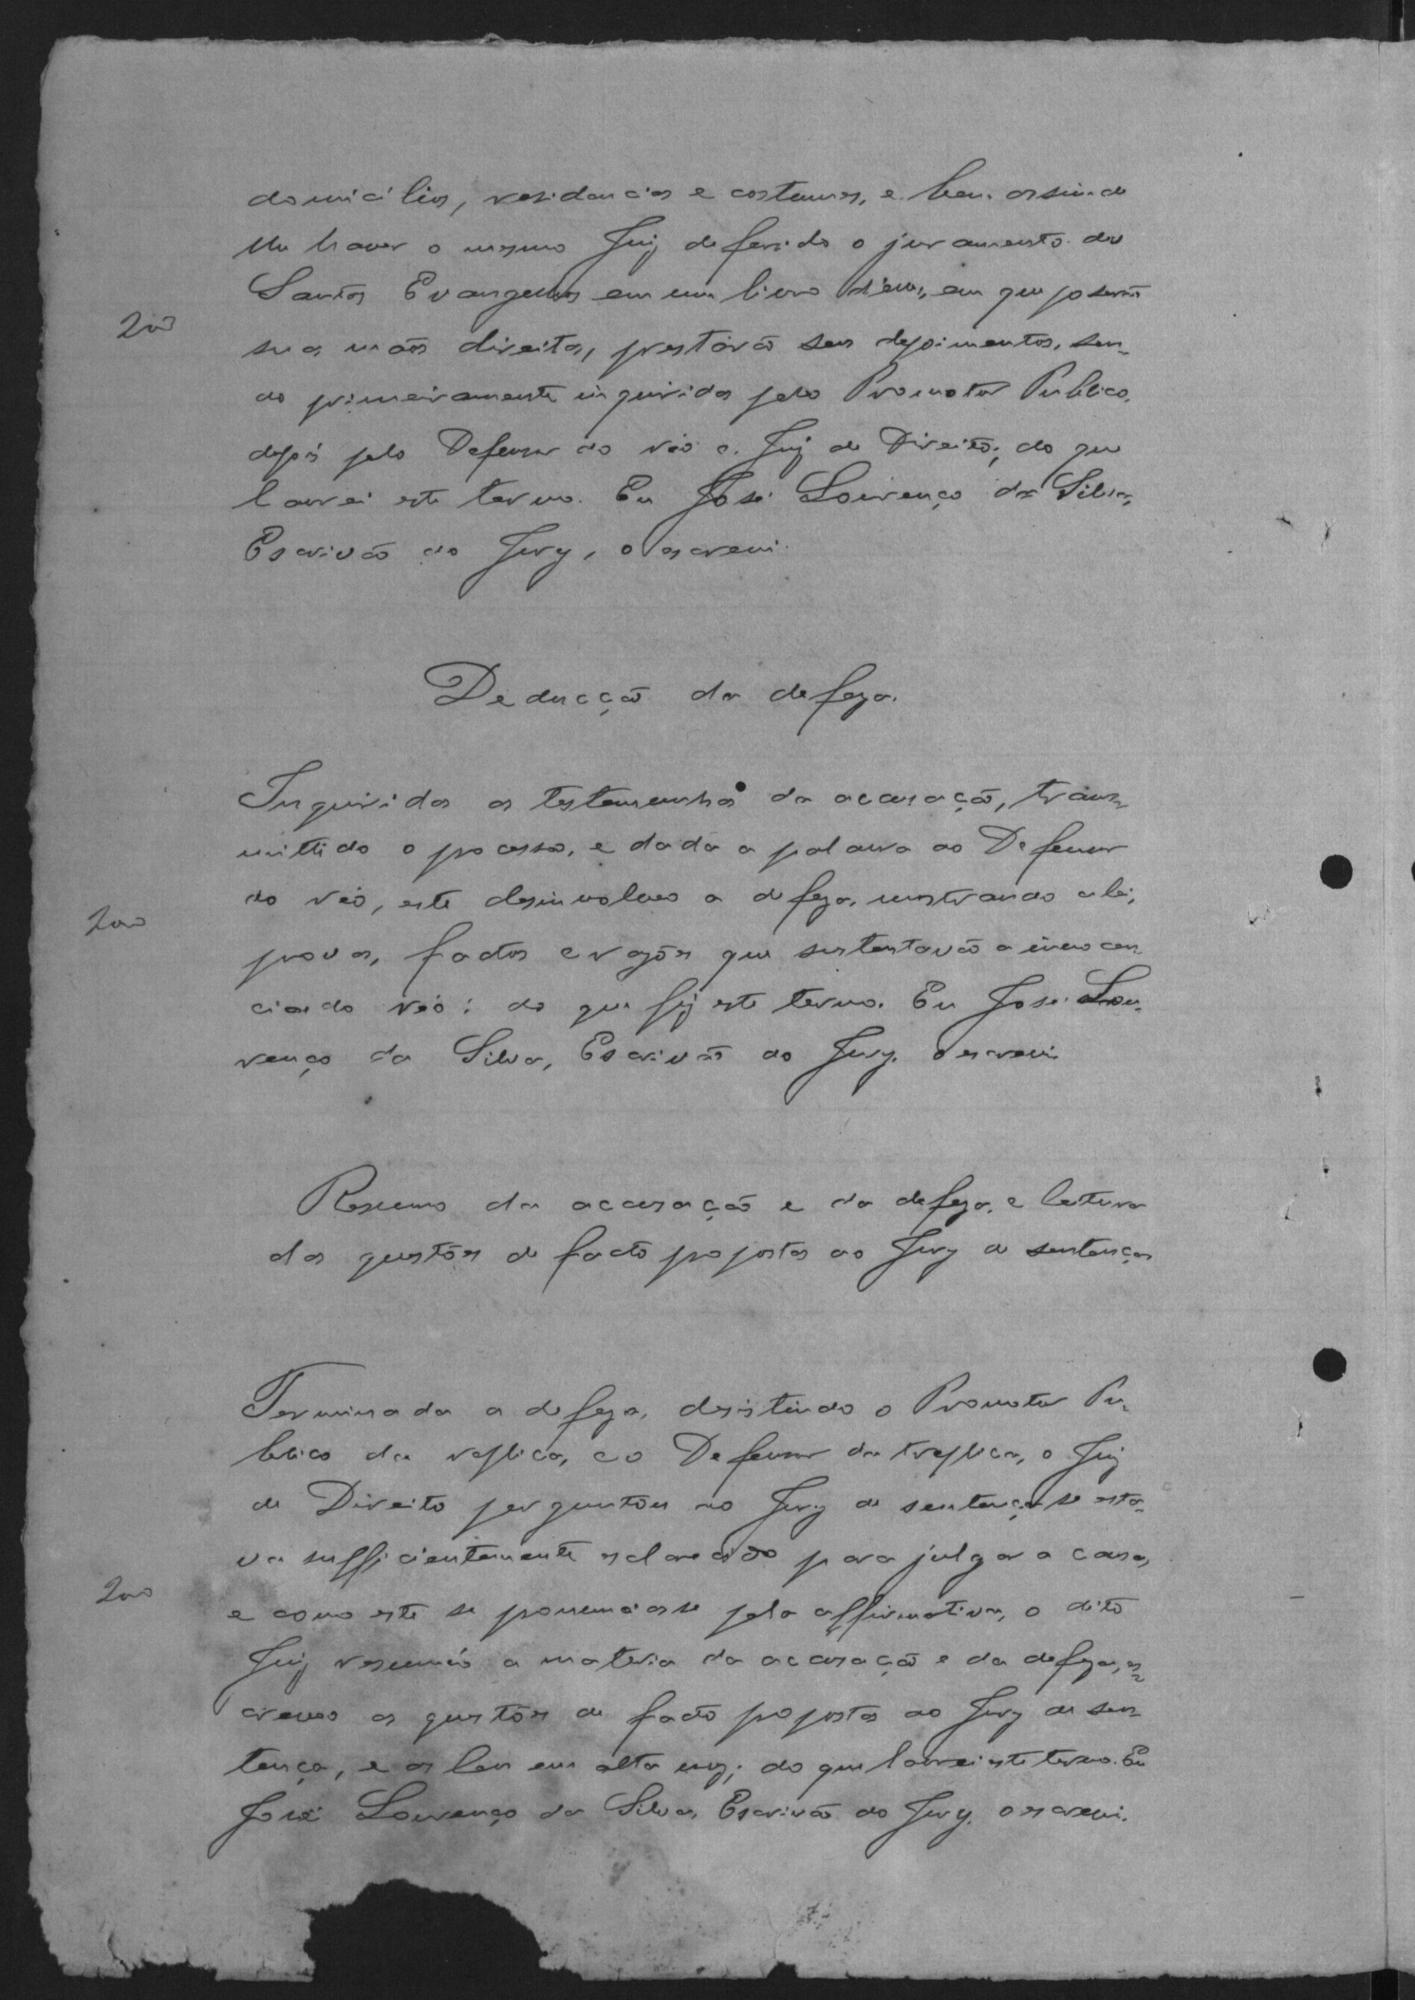 domicilios, residencias e costumes, e bem assim de
lhe haver o mesmo Juiz deferido o juramento dos
Santos Evangelhos em um livro d'elles, em que poserão
200
suas mãos direitas, prestárão seus depoimentos, sen-
do primeiramente inquiridas pelo Promotor Publico,
depois pelo Defensor do réo e Juiz de Direito; do que
lavrei este termo. Eu José Lourenço da Silva,
Escrivão do Jury, o escrevi.
Deducção da defeza.
Inquiridas as testemunhas da accusação, trans-
mittido o processo, e dada a palavra ao Defensor
do réo, este desinvolveo a defeza, mostrando a lei,
200
provas, factos e razões que sustentavão a innocen-
cia do réo; do que fiz este termo. Eu José Lou-
renço da Silva, Escrivão do Jury, o escrevi
Resumo da accusação e da defeza, e leitura
das questões de facto propostas ao Jury de sentença
Terminada a defeza, desistindo o Promotor Pu-
blico da replica, e o Defensor da treplica, o Juiz
de Direito perguntou ao Jury de sentença se esta-
va sufficientemente esclarecido para julgar a causa,
200
e como este se pronunciasse pela affirmativa, o dito
Juiz resumio a materia da accusação e da defeza, es-
creveo as questões de facto propostas ao Jury de sen-
tença, e as leu em alta voz; do que lavrei este termo. Eu
José Lourenço da Silva, Escrivão do Jury, o escrevi.